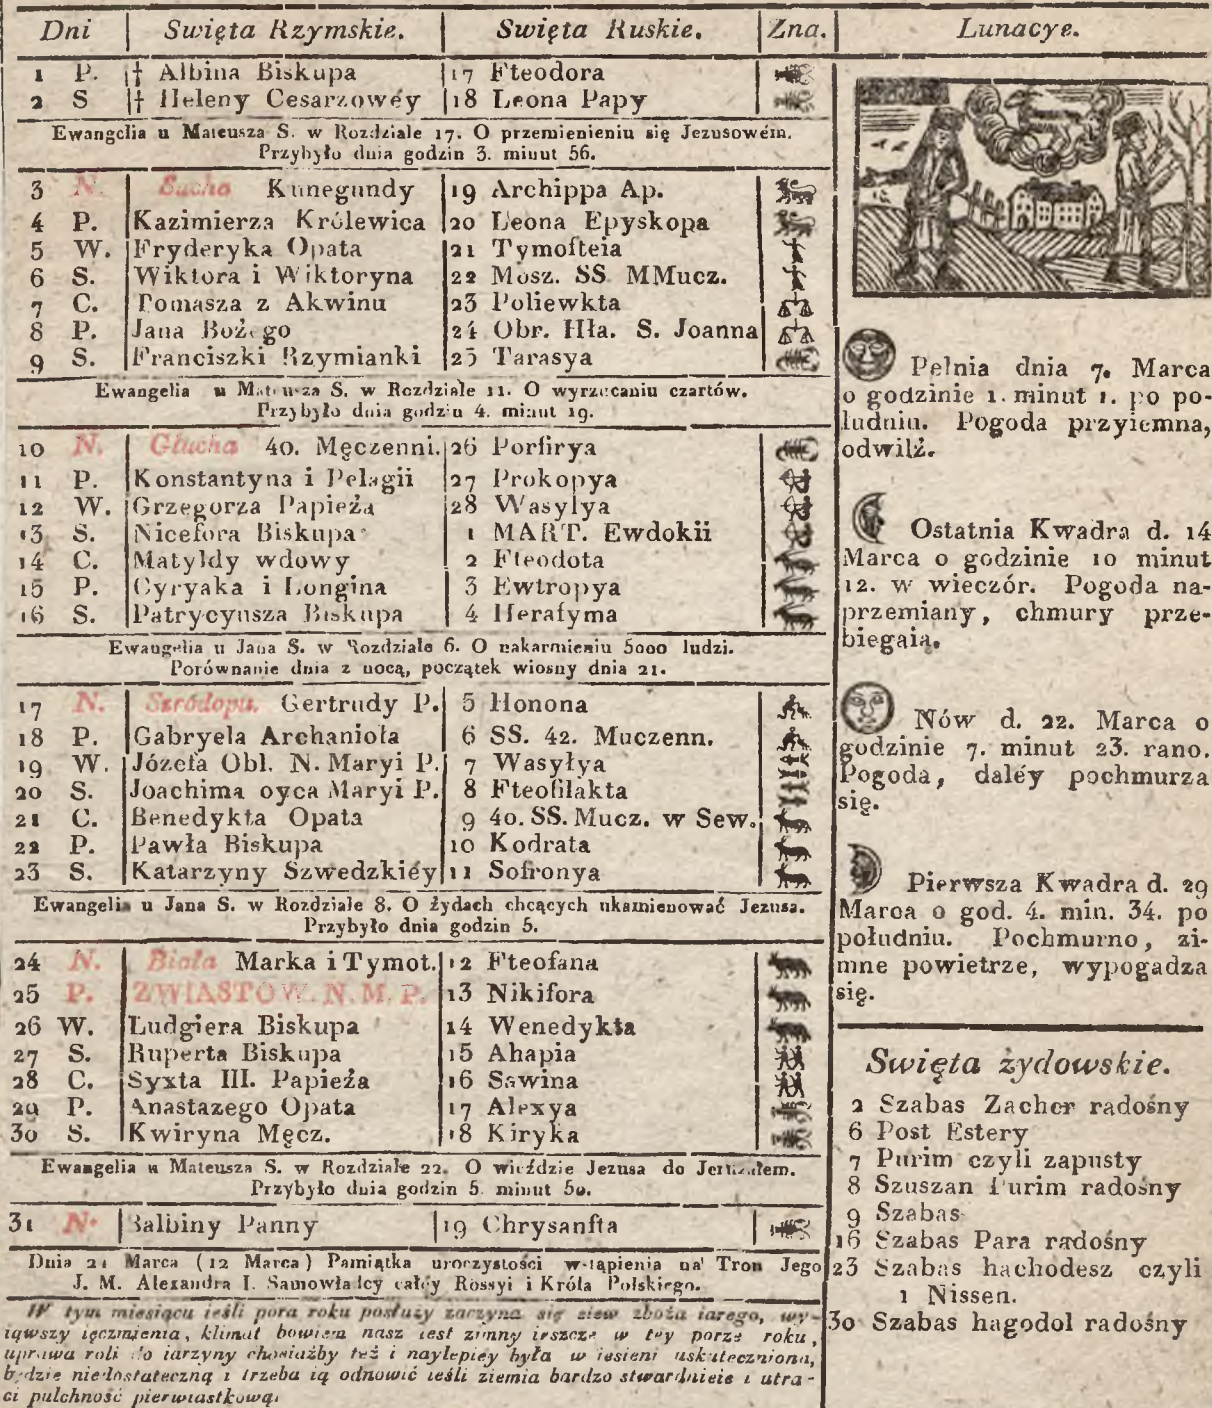 Dni Swięta Rzymskie. Swięta Ruskie. Zna.
1 P. † Albina Biskupa 17 Fteodora
2 S † Heleny Cesarzowéy 18 Leona Papy
Ewangelia u Mateusza S. w Rozdziale 17. O przemienieniu się Jezusowém.
Przybyło dnia godzin 3. minut 56.
3 N. Sucha Kunegundy 19 Archippa Ap.
4 P. Kazimierza Królewica 20 Leona Epyskopa
5 W. Fryderyka Opata 21 Tymofteia
6 S. Wiktora i Wiktoryna 22 Mosz. SS MMucz.
7 C. Tomasza z Akwinu 23 Poliewkta
8 P. Jana Bożego 24 Obr. Hła. S. Joanna
9 S. Franciszki Rzymianki 25 Tarasya
Ewangelia u Mateusza S. w Rozdziale 11. O wyrzucaniu czartów.
Przybyło dnia godzin 4. minut 19.
10 N. Głucha 40. Męczenni. 26 Porfirya
11 P. Konstantyna i Pelagii 27 Prokopya
12 W. Grzegorza Papieża 28 Wasylya
13 S. Nicefora Biskupa 1 MART. Ewdokii
14 C. Matyldy wdowy 2 Fteodota
15 P. Cyryaka i Longina 3 Ewtropya
16 S. Patrycyusza Biskupa 4 Herafyma
Ewangelia u Jana S. w Rozdziale 6. O nakarmieniu 5000 ludzi.
Porównanie dnia z nocą, początek wiosny dnia 21.
17 N. Szródopu. Gertrudy P. 5 Honona
18 P. Gabryela Archanioła 6 SS. 42. Muczenn.
19 W. Józefa Obl. N. Maryi P. 7 Wasyłya
20 S. Joachima oyca Maryi P. 8 Fteofilakta
21 C. Benedykta Opata 9 40. SS. Mucz. w Sew.
22 P. Pawła Biskupa 10 Kodrata
23 S. Katarzyny Szwedzkiéy 11 Sofronya
Ewangelia u Jana S. w Rozdziale 8. O żydach chcących ukamienować Jezusa.
Przybyło dnia godzin 5.
24 N. Biała Marka i Tymot. 12 Fteofana
25 P. ZWIASTOW. N. M. P. 13 Nikifora
26 W. Ludgiera Biskupa 14 Wenedykta
27 S. Ruperta Biskupa 15 Ahapia
28 C. Syxta III. Papieża 16 Sawina
29 P. Anastazego Opata 17 Alexya
30 S. Kwiryna Męcz. 18 Kiryka
Ewangelia u Mateusza S. w Rozdziale 22. O wieździe Jezusa do Jeruzalem.
Przybyło dnia godzin 5 minut 50.
31 N. Balbiny Panny 19 Chrysanfta
Dnia 21 Marca (12 Marca) Pamiątka uroczystości wstąpienia na Tron Jego
J. M. Alexandra I. Samowładcy całéy Rossyi i Króla Polskiego.
W tym miesiącu ieśli pora roku posłuży zaczyna się siew zboża iarego, wy-
iąwszy ięczmienia, klimat bowiem nasz iest zimny ieszcze w tey porze roku,
uprawa roli do iarzyny chociażby też i naylepiey była w iesieni uskuteczniona,
będzie niedostateczną i trzeba ią odnowić ieśli ziemia bardzo stwardnieie i utra-
ci pulchność pierwiastkową.
Lunacye.
Pełnia dnia 7. Marca
o godzinie 1. minut 1. po po-
ludniu. Pogoda przyiemna,
odwilż.
Ostatnia Kwadra d. 14
Marca o godzinie 10 minut
12. w wieczór. Pogoda na-
przemiany, chmury prze-
biegaią.
Nów d. 22. Marca o
godzinie 7. minut 23. rano.
Pogoda, daléy pochmurza
się.
Pierwsza Kwadra d. 29
Marca o god. 4. min. 34. po
południu. Pochmurno, zi-
mne powietrze, wypogadza
się.
Swięta żydowskie.
2 Szabas Zacher radośny
6 Post Estery
7 Purim czyli zapusty
8 Szuszan Purim radośny
9 Szabas
16 Szabas Para radośny
23 Szabas hachodesz czyli
1 Nissen.
30 Szabas hagodol radośny